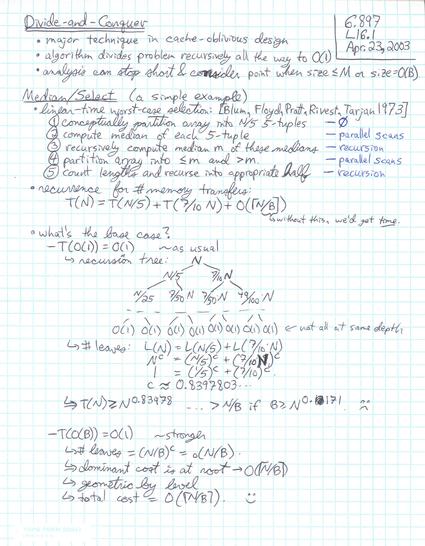 Divide-and-Conquer
6.897
L16.1
Apr. 23, 2003
• major technique in cache-oblivious design
• algorithm divides problem recursively all the way to O(1)
• analysis can stop short & consider point when size ≤ M or size = O(B)
Median/Select (a simple example)
• linear-time worst-case selection: [Blum, Floyd, Pratt, Rivest, Tarjan 1973]
① conceptually partition array into N/5 5-tuples — ∅
② compute median of each 5-tuple — parallel scans
③ recursively compute median m of these medians — recursion
④ partition array into ≤ m and > m. — parallel scans
⑤ count lengths and recurse into appropriate half — recursion
• recurrence for # memory transfers:
T(N) = T(N/5) + T(7/10 N) + O(⌈N/B⌉)
↳ without this, we'd get time.
• what's the base case?
– T(O(1)) = O(1) ~ as usual
↳ recursion tree: N
N/5 7/10 N
N/25 7/50 N 7/50 N 49/100 N
O(1) O(1) O(1) O(1) O(1) O(1) O(1) ← not all at same depth!
↳ # leaves: L(N) = L(N/5) + L(7/10 N)
N^c = (N/5)^c + (7/10 N)^c
1 = (1/5)^c + (7/10)^c
c ≈ 0.8397803...
↳ T(N) ≥ N^0.83978 ... > N/B if B ≥ N^0.171. ☹
– T(O(B)) = O(1) ~ stronger
↳ # leaves = (N/B)^c = o(N/B).
↳ dominant cost is at root → O(⌈N/B⌉)
↳ geometric by level
↳ total cost = O(⌈N/B⌉). ☺